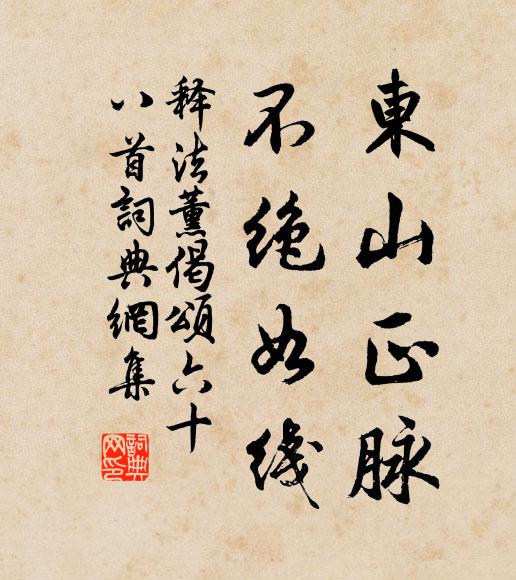 東山正脉
不絶如綫
释法薰偈頌六十
八首詞典網集
詞典
网印